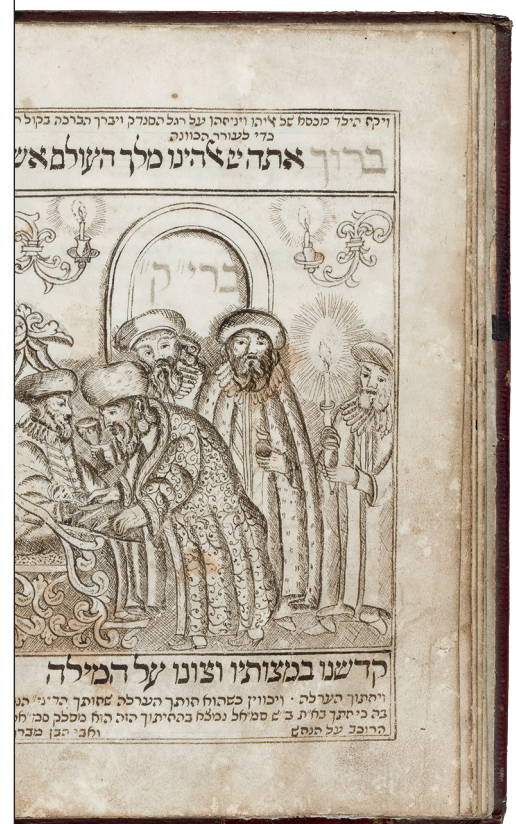 ויקח הילד מכסא של אליהו ויניחהו על רגל הסנדק ויברך הברכה בקול
כדי לעורר הכוונה
ברוך אתה יי אלהינו מלך העולם אש
ברי״ק
קדשנו במצותיו וצונו על המילה
ויחתוך הערלה · ויכווין כשהוא חותך הערלה שחותך הדיני'
בה כי חתך בא״ת ב״ש סמאל נמצא בחיתוך הזה הוא מסלק
הרוכב על הנחש ואבי הבן